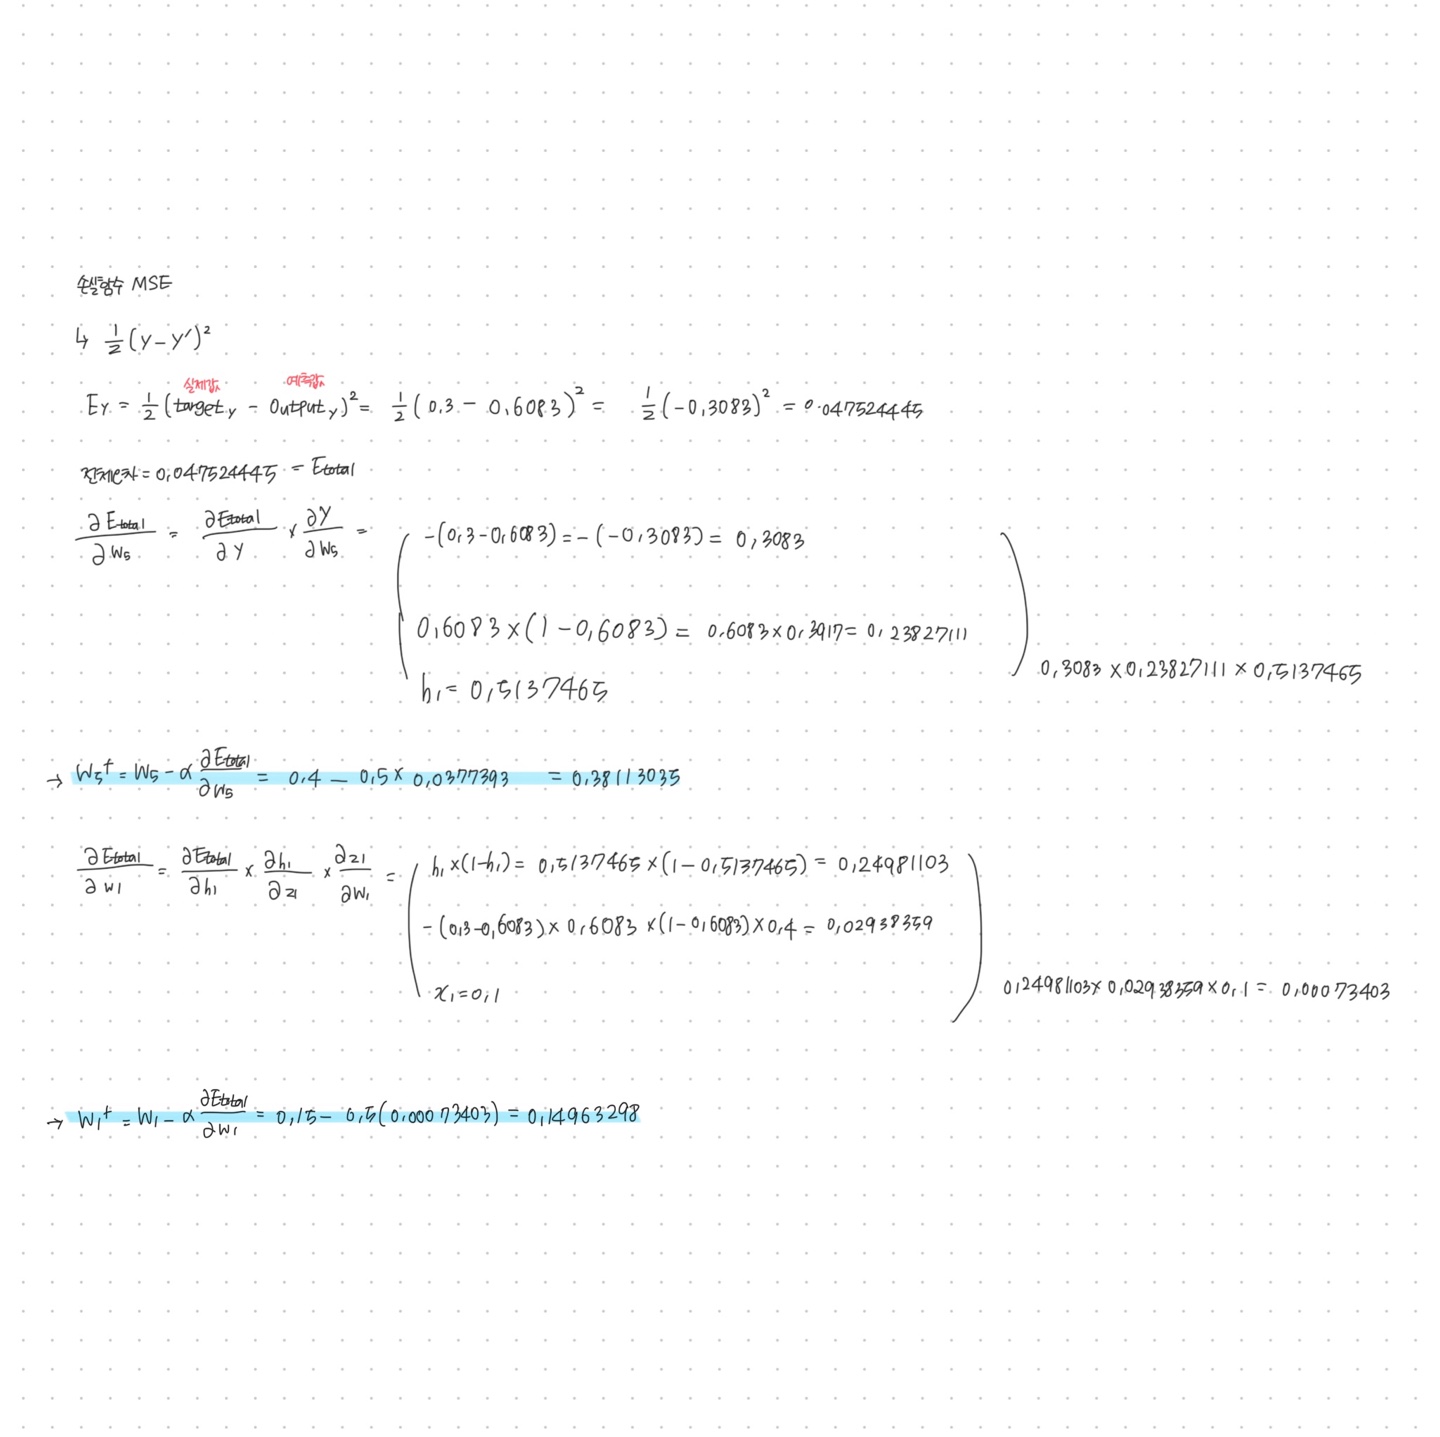 손실함수 MSE
↳ ½(Y-Y')²
실제값 예측값
E_Y = ½(target_y - Output_y)² = ½(0.3 - 0.6083)² = ½(-0.3083)² = 0.047524445
전체오차 = 0.047524445 = E_total
∂E_total/∂W5 = ∂E_total/∂Y × ∂Y/∂W5 =
-(0.3-0.6083) = -(-0.3083) = 0.3083
0.6083×(1-0.6083) = 0.6083×0.3917 = 0.23827111
h₁ = 0.5137465
0.3083×0.23827111×0.5137465
→ W5⁺ = W5 - α ∂E_total/∂W5 = 0.4 - 0.5×0.0377393 = 0.38113035
∂E_total/∂W1 = ∂E_total/∂h1 × ∂h1/∂z1 × ∂z1/∂W1 =
h₁×(1-h₁) = 0.5137465×(1-0.5137465) = 0.24981103
-(0.3-0.6083)×0.6083×(1-0.6083)×0.4 = 0.02938359
x₁=0.1
0.24981103×0.02938359×0.1 = 0.00073403
→ W1⁺ = W1 - α ∂E_total/∂W1 = 0.15 - 0.5(0.00073403) = 0.14963298